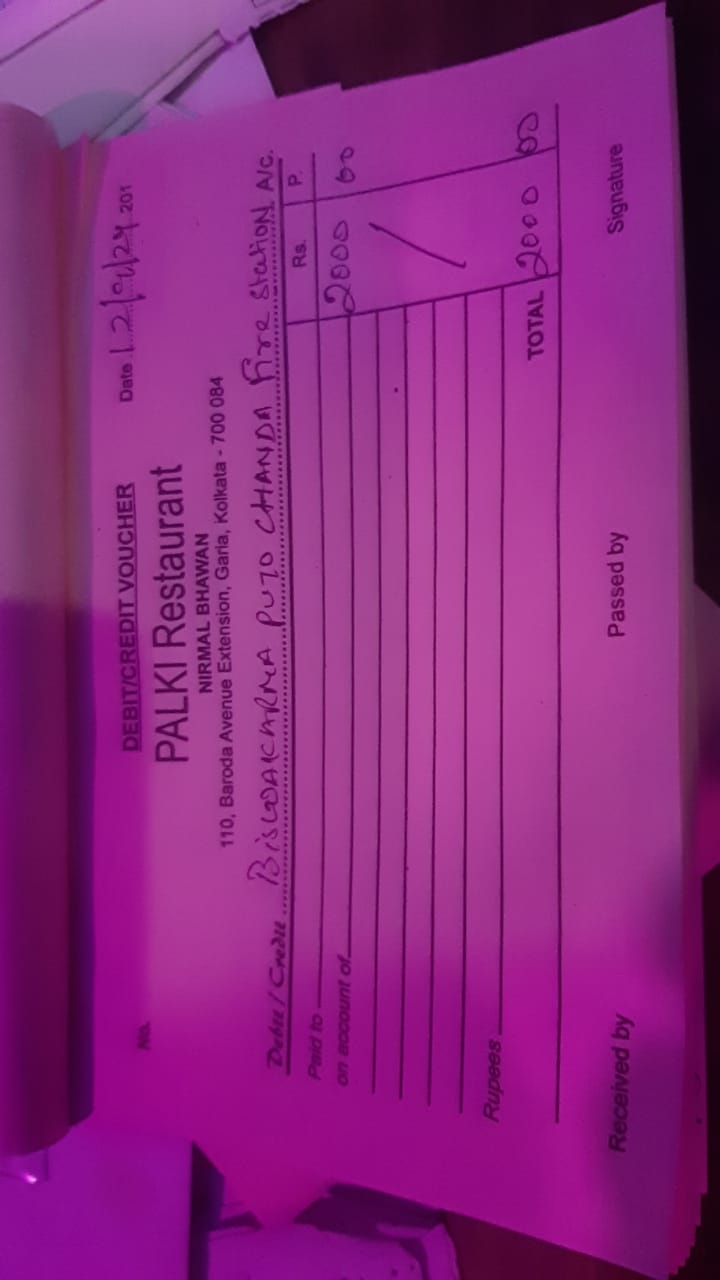 DEBIT/CREDIT VOUCHER
No.
Date 12/09/24 201
PALKI Restaurant
NIRMAL BHAWAN
110, Baroda Avenue Extension, Garia, Kolkata - 700 084
Debit / Credit BISWAKARMA PUJO CHANDA Fire Station A/c.
Paid to Rs. P.
on account of 2000 00
Rupees
TOTAL 2000 00
Received by Passed by Signature